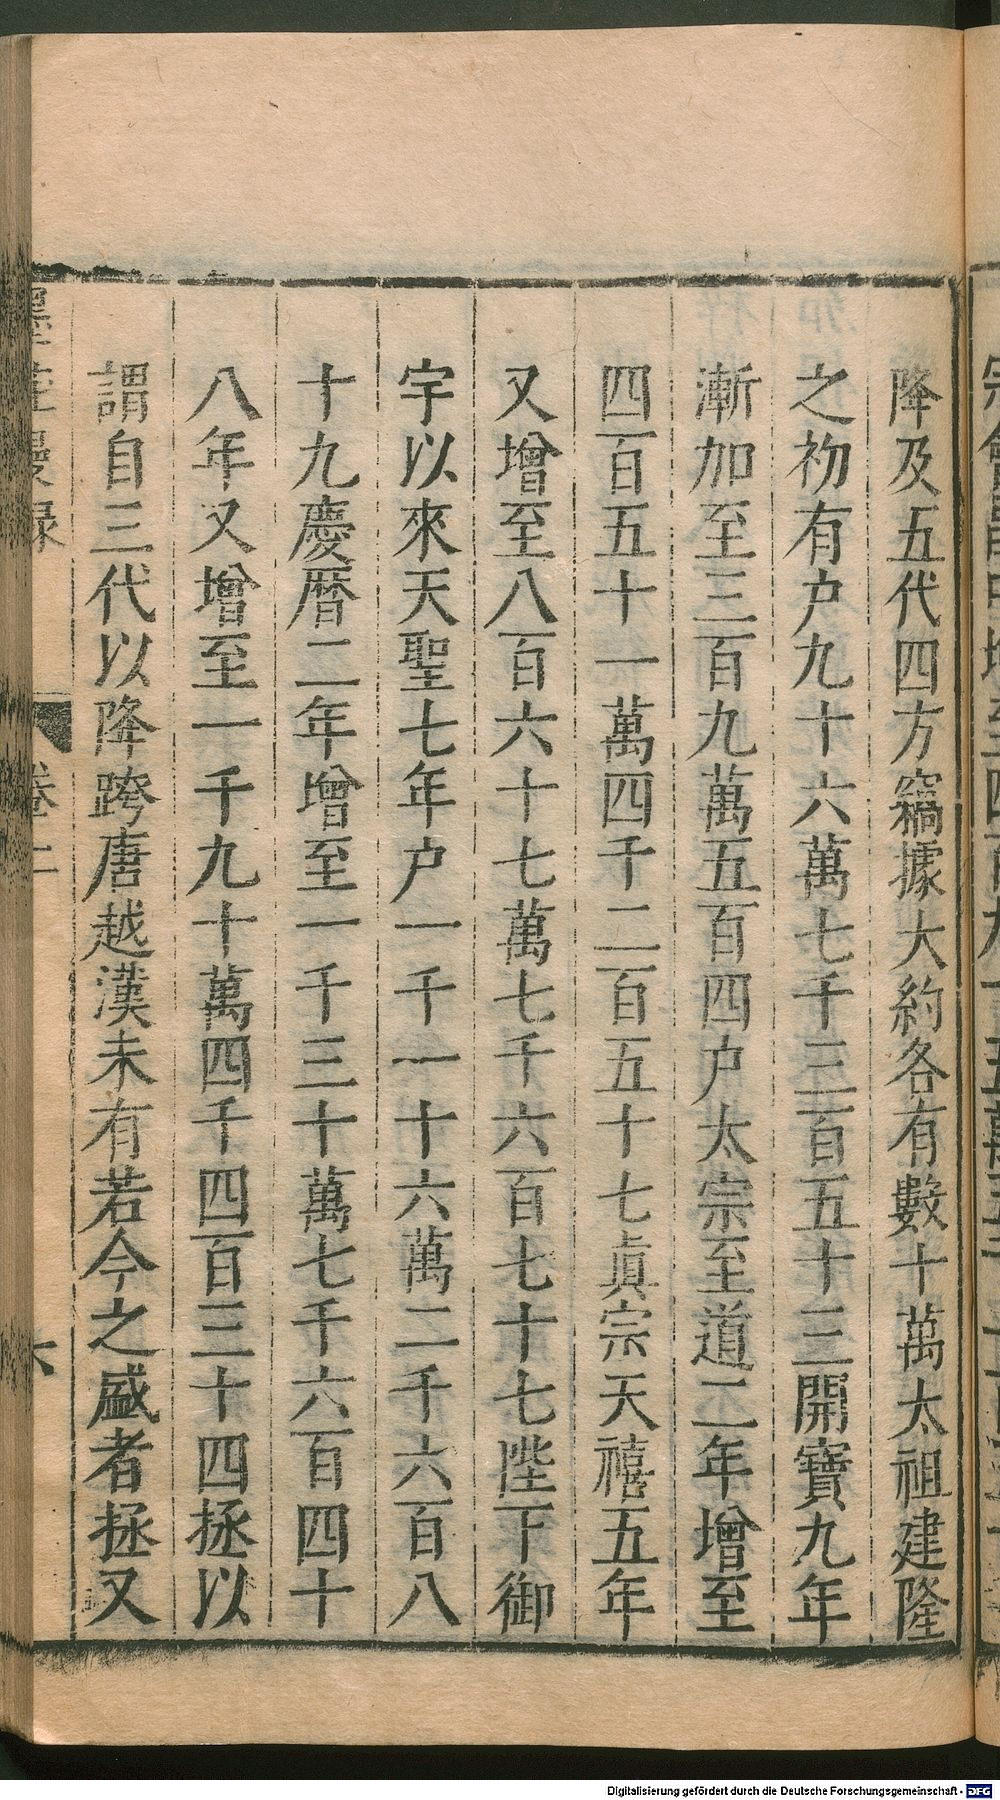 降及五代四方竊據大約各有數十萬太祖建隆
之初有户九十六萬七千三百五十三開寶九年
漸加至三百九萬五百四户太宗至道二年增至
四百五十一萬四千二百五十七眞宗天禧五年
又增至八百六十七萬七千六百七十七陛下御
宇以來天聖七年户一千一十六萬二千六百八
十九慶曆二年增至一千三十萬七千六百四十
八年又增至一千九十萬四千四百三十四拯以
謂自三代以降跨唐越漢未有若今之盛者拯又
墨莊漫録 卷二 六
Digitalisierung gefördert durch die Deutsche Forschungsgemeinschaft - DFG